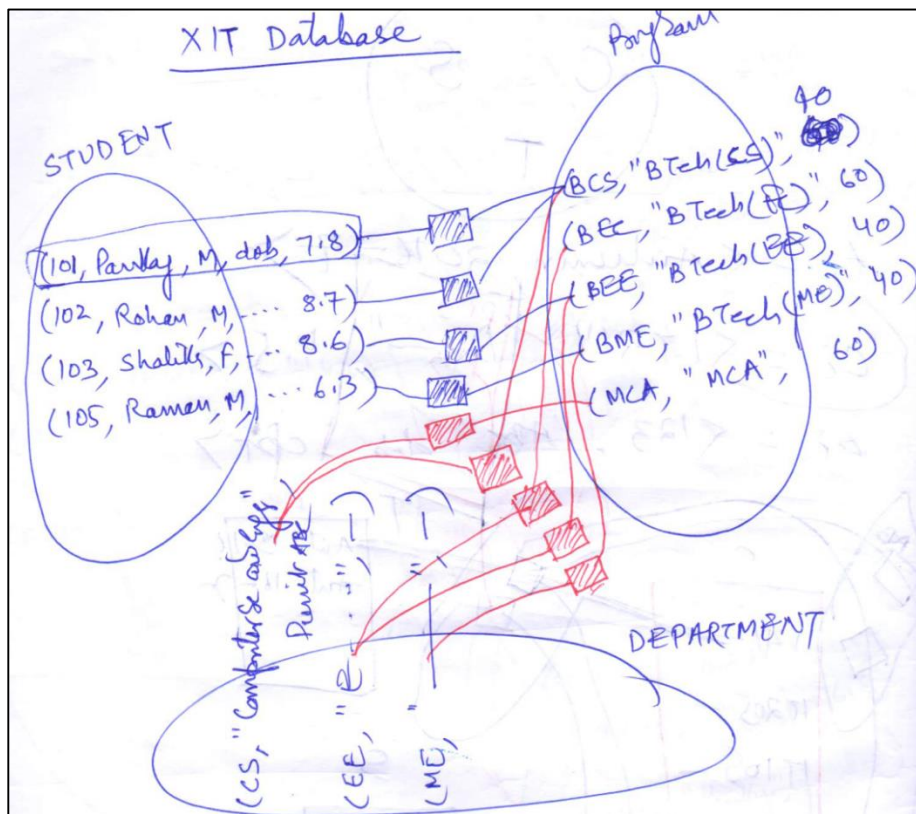 XIT Database
Program
STUDENT
40
(101, Pankaj, M, dob, 7.8)
(102, Rohan, M, .... 8.7)
(103, Shalik, F, ... 8.6)
(105, Raman, M, ... 6.3)
(BCS, "BTech(CS)", )
(BEC, "BTech(EC)", 60)
(BEE, "BTech(EE), 40)
(BME, "BTech(ME)", 40)
(MCA, "MCA", 60)
(CS, "Computer
Punit ABC
(EE, "E ...", —)
(ME, " — ", —)
DEPARTMENT